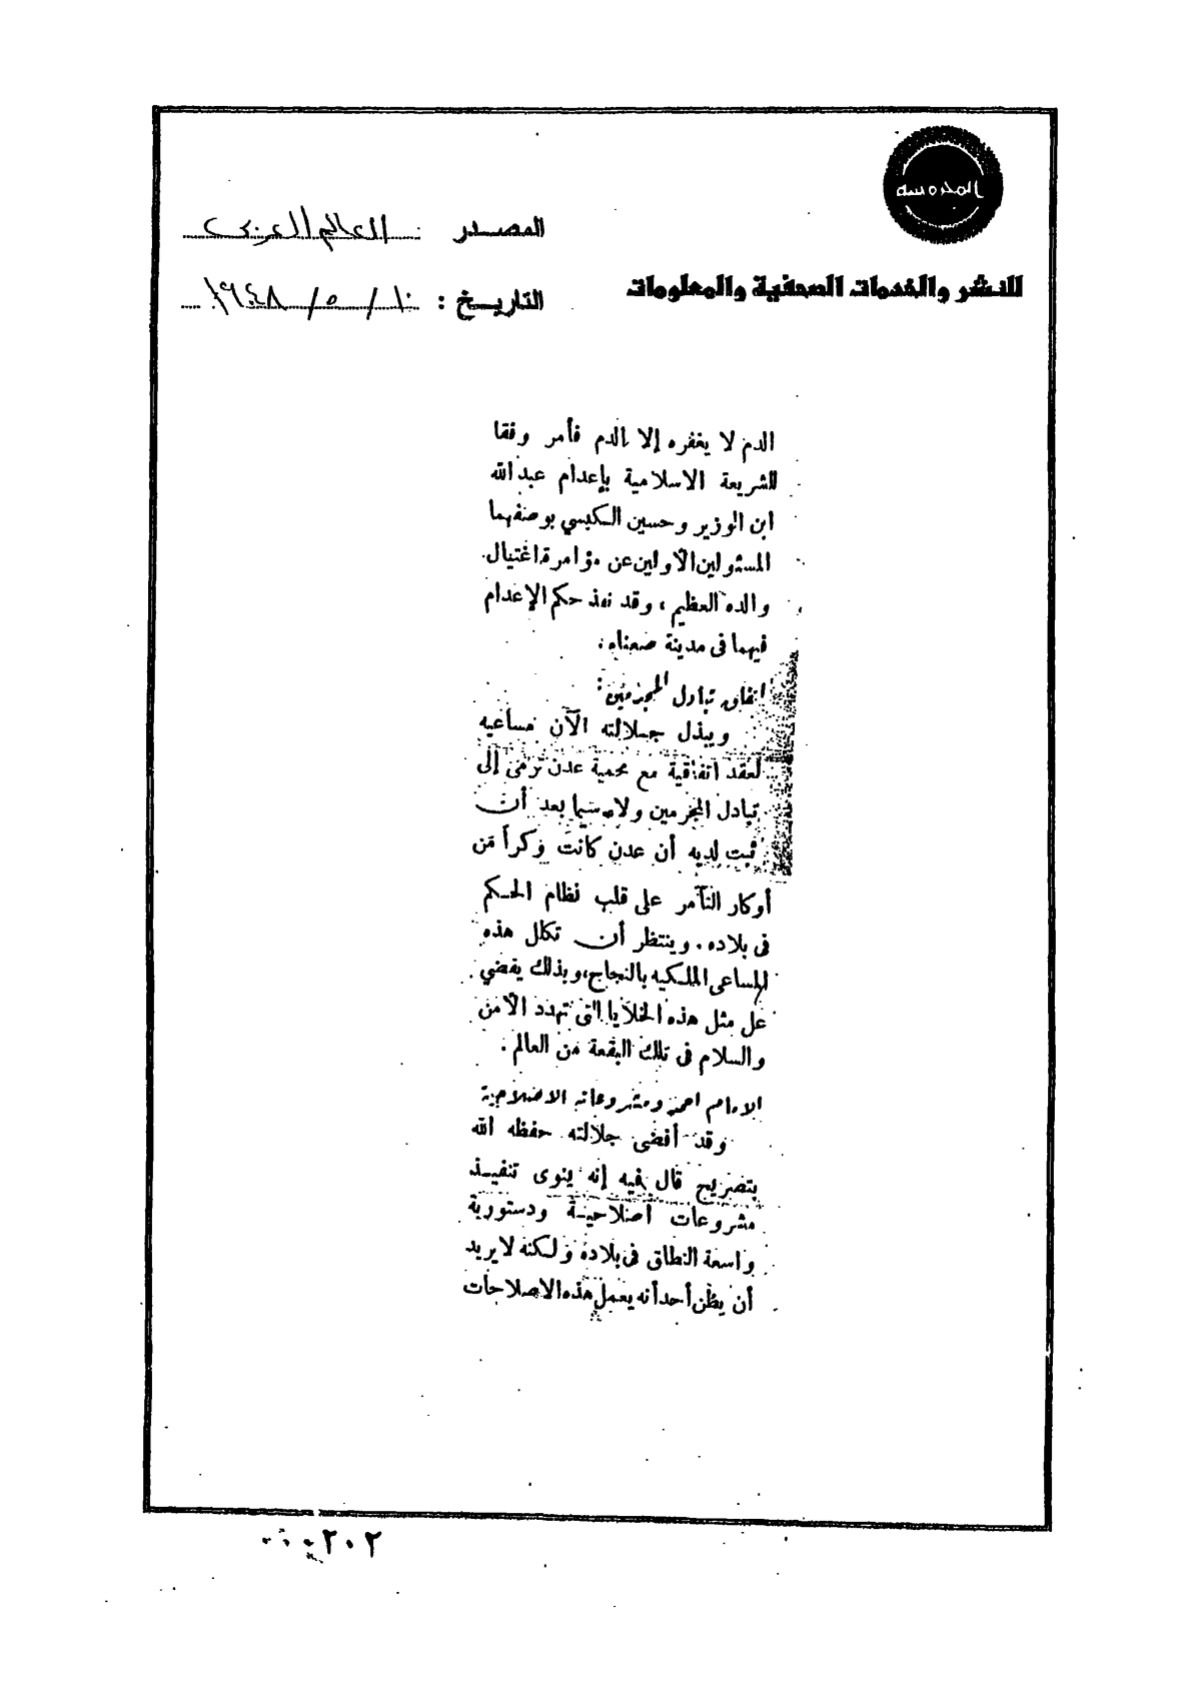 المحروسه
للنشر والخدمات الصحفية والمعلومات
المصدر : العالم العربى
التاريخ : ١٠ / ٥ / ١٩٤٨
الدم لا يغفره إلا الدم فأمر وفقا
للشريعة الاسلامية بإعدام عبد الله
ابن الوزير وحسين الكبسي بوصفهما
المسئولين الأولين عن مؤامرة اغتيال
والده العظيم ، وقد نفذ حكم الإعدام
فيهما فى مدينة صنعاء .
اتفاق تبادل المجرمين :
ويبذل جلالته الآن مساعيه
لعقد اتفاقية مع محمية عدن ترمى إلى
تبادل المجرمين ولا سيما بعد أن
ثبت لديه أن عدن كانت وكراً من
أوكار التآمر على قلب نظام الحكم
فى بلاده . وينتظر أن تكلل هذه
المساعى الملكيه بالنجاح ، وبذلك يقضي
على مثل هذه الخلايا التى تهدد الأمن
والسلام فى تلك البقعة من العالم .
الامام احمد ومشروعاته الاصلاحية
وقد أفضى جلالته حفظه الله
بتصريح قال فيه إنه ينوى تنفيذ
مشروعات اصلاحية ودستورية
واسعة النطاق فى بلاده ولكنه لا يريد
أن يظن أحد أنه يعمل هذه الاصلاحات
٢٠٢